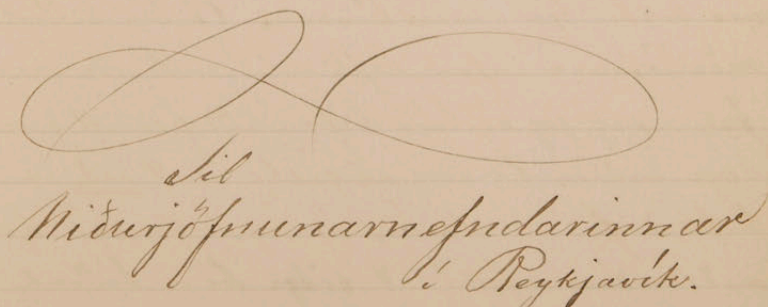 Til
Niðurjöfnunarnefndarinnar
í Reykjavík.